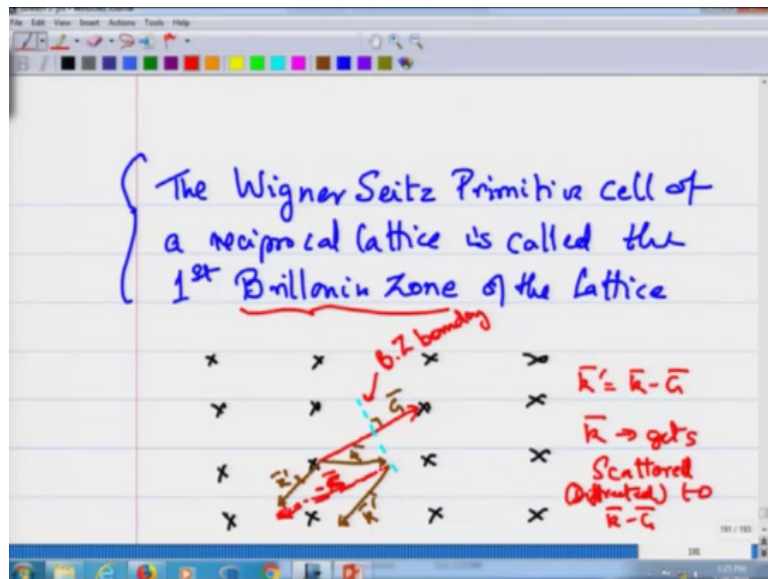 File Edit View Insert Actions Tools Help
B I
The Wigner Seitz Primitive cell of
a reciprocal lattice is called the
1st Brillouin Zone of the lattice
B.Z boundary
G
k
k'
-G
k'
k̄' = k̄ - Ḡ
k̄ → gets
Scattered
(Diffracted) to
k̄ - Ḡ
191 / 193
191
1:25 PM